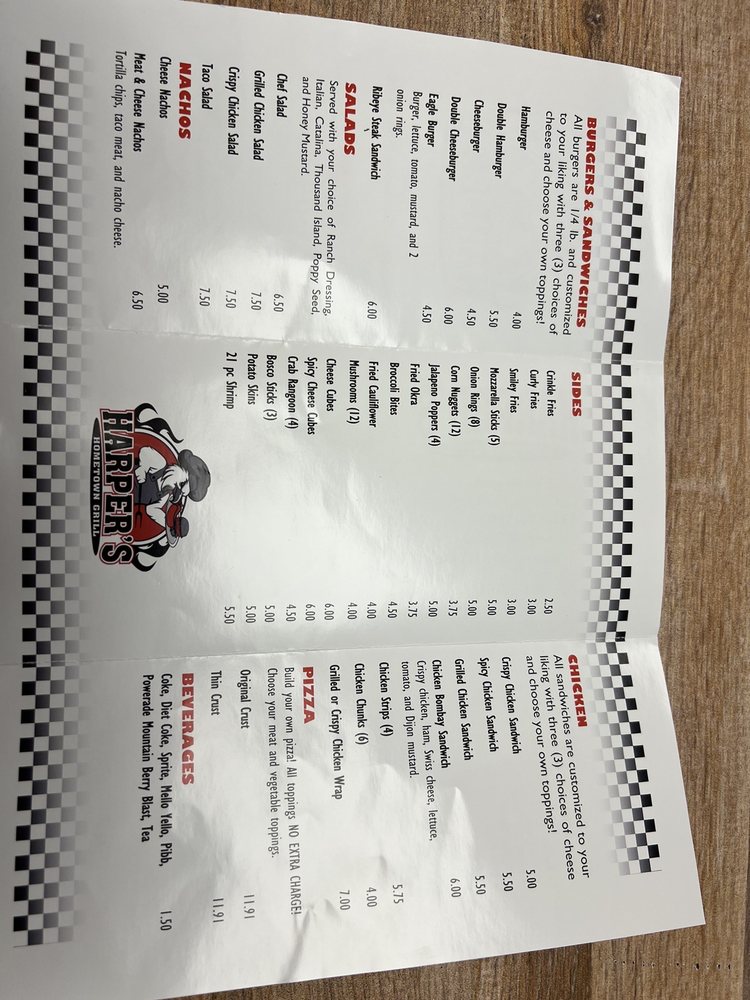 BURGERS & SANDWICHES
All burgers are 1/4 lb. and customized
to your liking with three (3) choices of
cheese and choose your own toppings!
Hamburger 4.00
Double Hamburger 5.50
Cheeseburger 4.50
Double Cheeseburger 6.00
Eagle Burger 4.50
Burger, lettuce, tomato, mustard, and 2
onion rings.
Ribeye Steak Sandwich 6.00
SALADS
Served with your choice of Ranch Dressing,
Italian, Catalina, Thousand Island, Poppy Seed,
and Honey Mustard.
Chef Salad 6.50
Grilled Chicken Salad 7.50
Crispy Chicken Salad 7.50
Taco Salad 7.50
NACHOS
Cheese Nachos 5.00
Meat & Cheese Nachos 6.50
Tortilla chips, taco meat, and nacho cheese.
SIDES
Crinkle Fries 2.50
Curly Fries 3.00
Smiley Fries 3.00
Mozzarella Sticks (5) 5.00
Onion Rings (8) 5.00
Corn Nuggets (12) 3.75
Jalapeno Poppers (4) 5.00
Fried Okra 3.75
Broccoli Bites 4.50
Fried Cauliflower 4.00
Mushrooms (12) 4.00
Cheese Cubes 6.00
Spicy Cheese Cubes 6.00
Crab Rangoon (4) 4.50
Bosco Sticks (3) 5.00
Potato Skins 5.00
21 pc Shrimp 5.50
HARPER'S
HOMETOWN GRILL
CHICKEN
All sandwiches are customized to your
liking with three (3) choices of cheese
and choose your own toppings!
Crispy Chicken Sandwich 5.00
Spicy Chicken Sandwich 5.50
Grilled Chicken Sandwich 5.50
Chicken Bombay Sandwich 6.00
Crispy chicken, ham, Swiss cheese, lettuce,
tomato, and Dijon mustard.
Chicken Strips (4) 5.75
Chicken Chunks (6) 4.00
Grilled or Crispy Chicken Wrap 7.00
PIZZA
Build your own pizza! All toppings NO EXTRA CHARGE!
Choose your meat and vegetable toppings.
Original Crust 11.91
Thin Crust 11.91
BEVERAGES
Coke, Diet Coke, Sprite, Mello Yello, Pibb, 1.50
Powerade Mountain Berry Blast, Tea